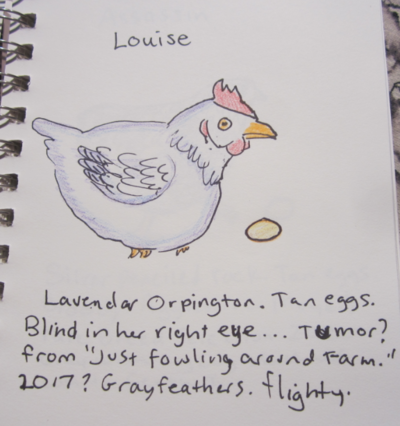 Louise
Lavendar Orpington. Tan eggs.
Blind in her right eye... Tumor?
from "Just fowling around Farm."
2017? Grayfeathers. flighty.